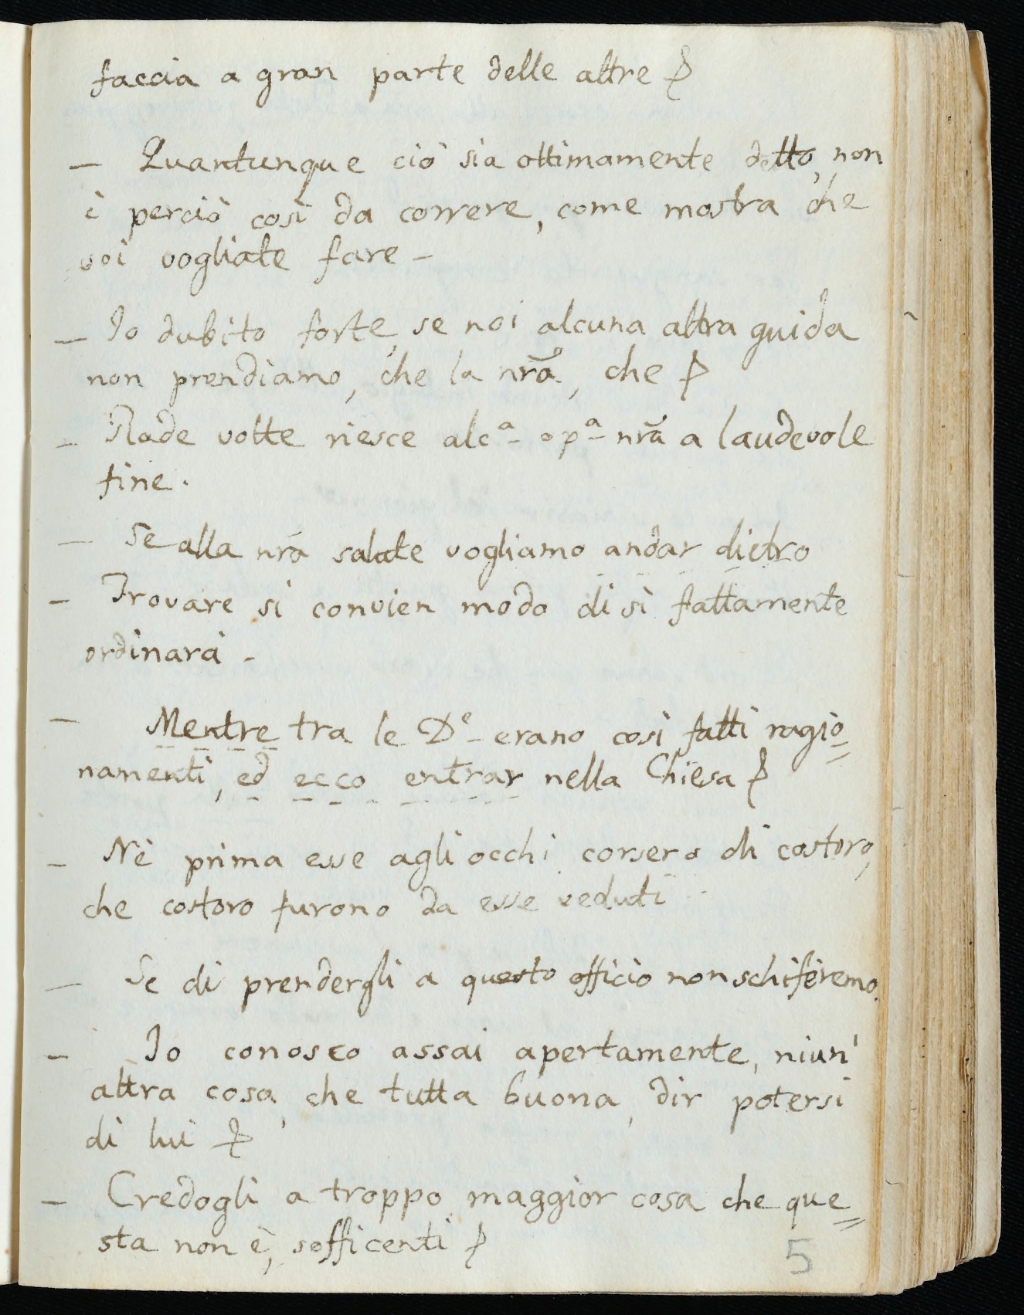 faccia a gran parte delle altre &
— Quantunque ciò sia ottimamente detto, non
è perciò così da correre, come mostra che
voi vogliate fare –
— Io dubito forte, se noi alcuna altra guida
non prendiamo, che la nrã, che &
– Rade volte riesce alcª opª nrã a laudevole
fine.
— Se alla nrã salute vogliamo andar dietro
– Trovare si convien modo di sì fattamente
ordinarci –
— Mentre tra le Dᵉ erano così fatti ragio=
namenti, ed ecco entrar nella Chiesa &
– Nè prima esse agli occhi corsero di costoro,
che costoro furono da esse veduti
— Se di prendergli a questo officio non schiferemo.
– Io conosco assai apertamente, niun'
altra cosa, che tutta buona, dir potersi
di lui &
– Credogli a troppo maggior cosa che que=
sta non è, sofficenti &
5